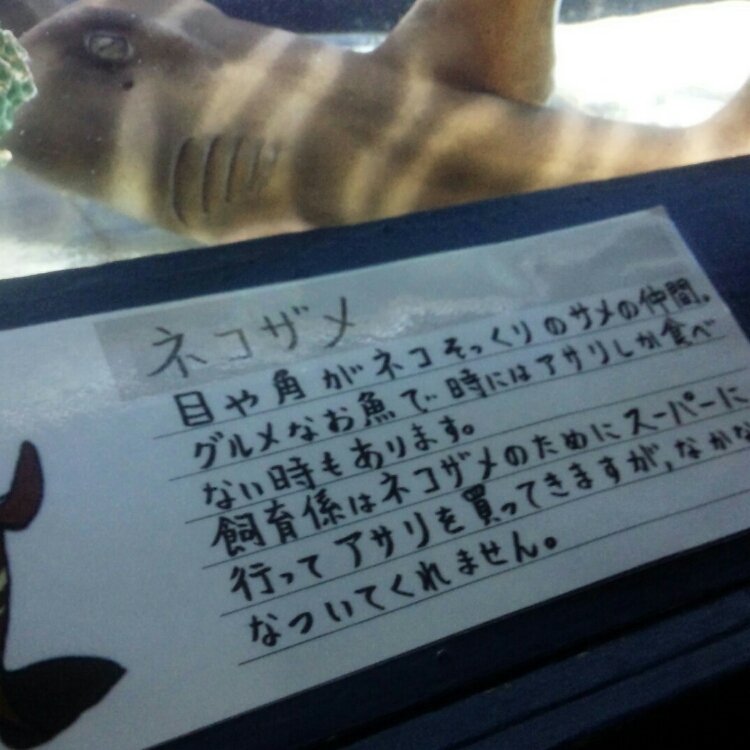 ネコザメ
目や角がネコそっくりのサメの仲間。
グルメなお魚で時にはアサリしか食べ
ない時もあります。
飼育係はネコザメのためにスーパーに
行ってアサリを買ってきますが、なかな
なついてくれません。